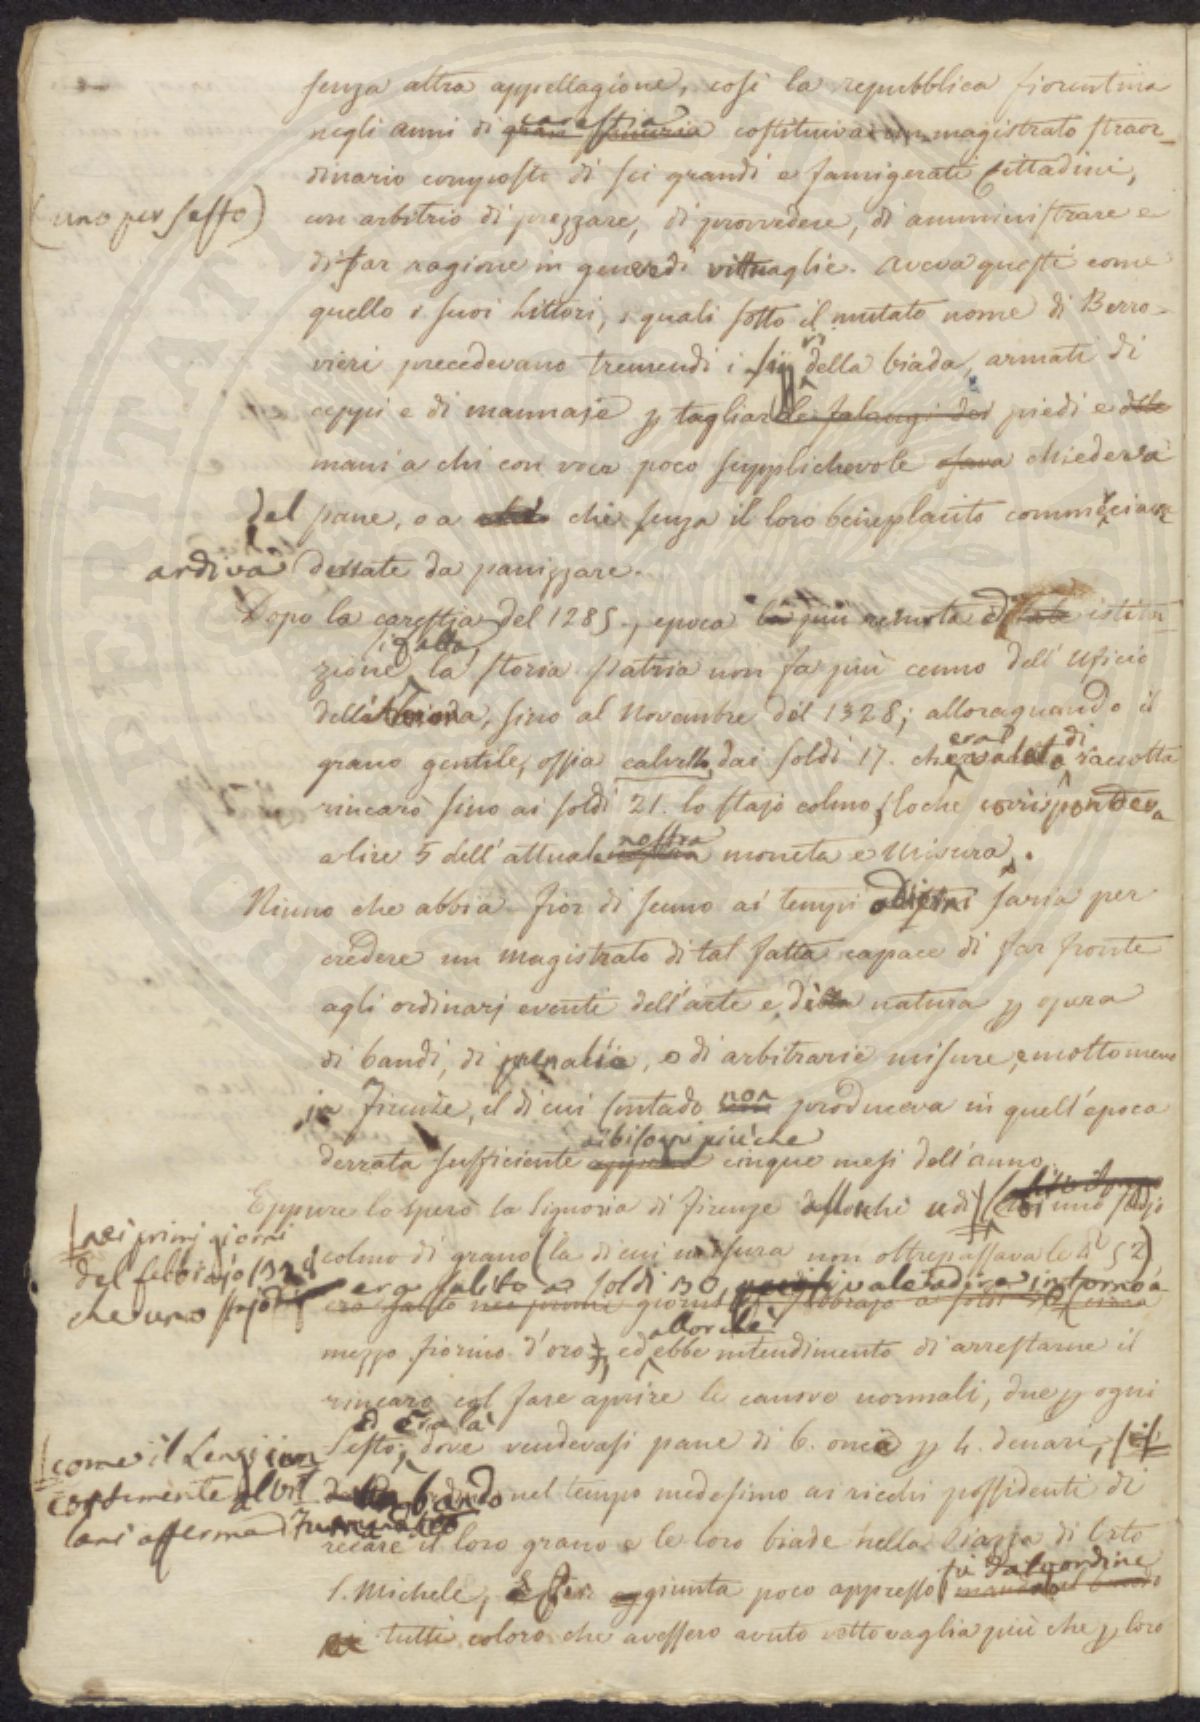 senza altra appellazione, così la repubblica fiorentina
negli anni di carestia costituiva un magistrato straor-
dinario composto di sei grandi e famigerati Cittadini,
(uno per sesto)
con arbitrio di prezzare, di provvedere, di amministrare e
di far ragione in genere di vittuaglie. Aveva questi come
quello i suoi Littori, i quali sotto il mutato nome di Berro-
vieri precedevano tremendi i sei della biada, armati di
ceppi e di mannaje p tagliar le falangi dei piedi e delle
mani a chi con voce poco supplichevole osava chiedeva
del pane, o a chi senza il loro beneplacito commerciare
ardiva derrate da panizzare.
Dopo la carestia del 1285., epoca la più remota di tale istitu-
zione, la storia patria non fa più cenno dell' Uficio
della biada, sino al Novembre del 1328; alloraquando il
grano gentile, ossia calvello, dai soldi 17. che era valutato di raccolta
rincarò sino ai soldi 21. lo stajo colmo, loche corrispondeva
a lire 5 dell' attuale nostra moneta e misura.
Niuno che abbia fior di senno ai tempi odierni saria per
credere un magistrato di tal fatta capace di far fronte
agli ordinarj eventi dell' arte e della natura p opera
di bandi, di penalità, o di arbitrarie misure, e molto meno
in Firenze, il di cui Contado non produceva in quell' epoca
derrata sufficiente ai bisogni più che cinque mesi dell' anno.
Eppure lo sperò la Signoria di Firenze allorchè udì che uno stajo
nei primi giorni
del febbrajo 1328
che uno stajo
colmo di grano (la di cui misura non oltrepassava le lb 52)
era salito a soldi 30, vale a dire intorno a
era salito nei primi giorni di febbrajo a soldi 30 circa
mezzo fiorino d'oro, ed allorchè ebbe intendimento di arrestarne il
rincaro col fare aprire le canove normali, due p ogni
Sesto, ed era là dove vendevasi pane di 6. once p 4. denari,
come il Lenzi con
bando nel tempo medesimo ai ricchi possidenti di
recare il loro grano e le loro biade nella Piazza di Orto
S. Michele, aggiunta poco appresso fu dato ordine
a tutti coloro che avessero avuto vettovaglia più che p loro